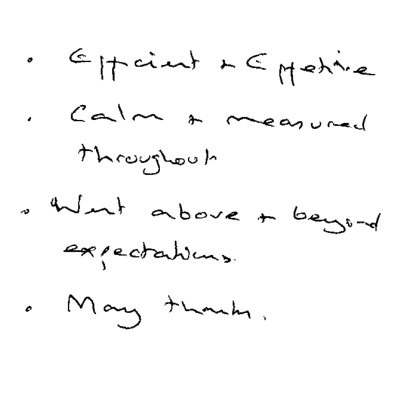 • Efficient + Effective
• Calm + measured
throughout
• Went above + beyond
expectations.
• Many thanks.